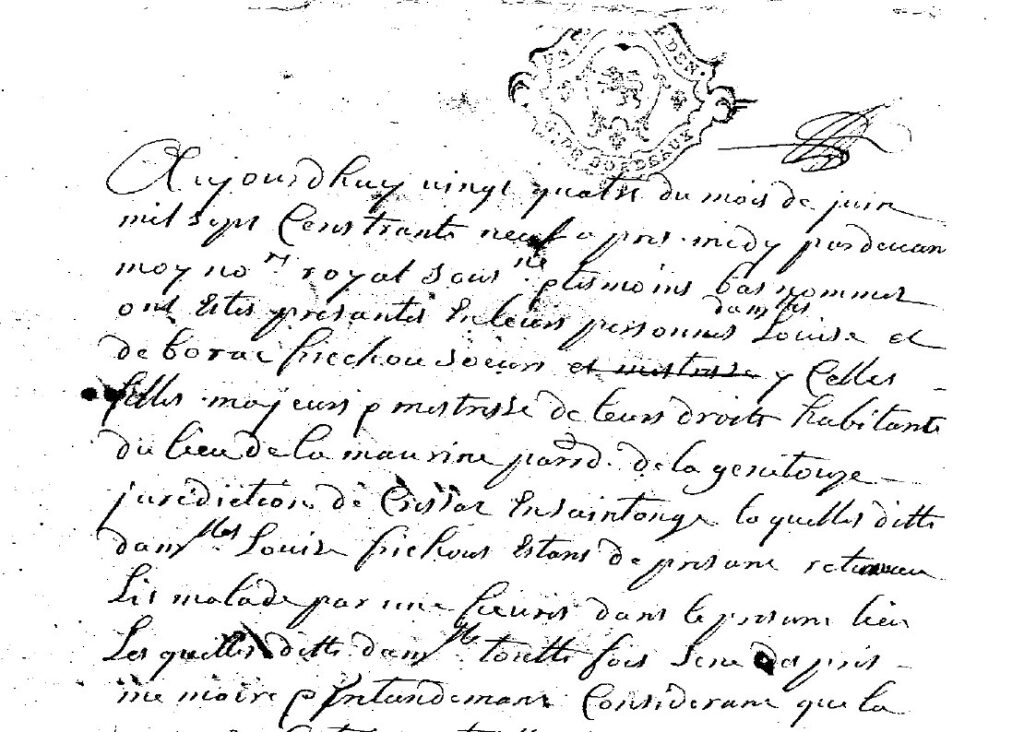 GEN. DEN.
G. DE BORDEAUX
Aujourdhuy vingt quatre du mois de juin
mil sept Cens trante neuf apres midy pardevan
moy no.re royal sous.ne p tesmoins bas nommes
ont Estes presantes En leurs personnes dam.lles Louise et
de borac frichou soeurs et mestresse y Celles
filles majeurs p mestresse de leurs droits habitante
du lieu de la maurine paro. de la genetouze
jurediction de Crissac En saintonge la quelles ditte
dam.lles Louise frichous Estant de presant retenue
Lit malade par une fievres dans le presant lieu
Les quelles ditte dam.lle toutte fois sene Des pris
me moire p Entandemant Considerant que la